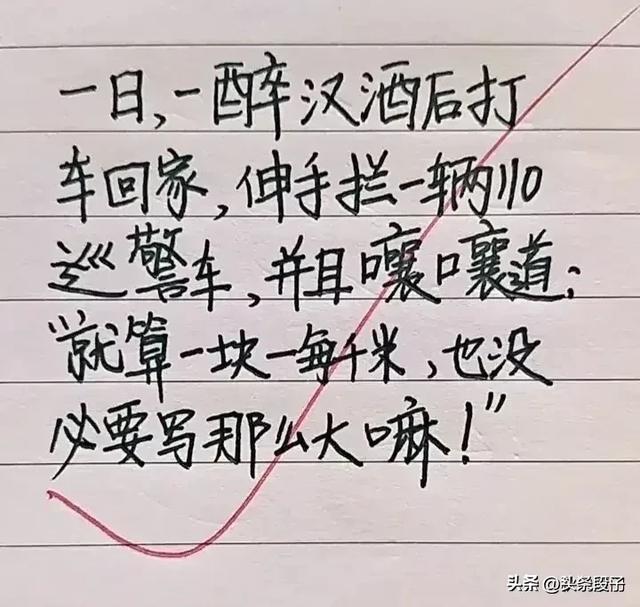 一日,一醉汉酒后打
车回家,伸手拦一辆110
巡警车,并且嚷嚷道:
"就算一块一每千米,也没
必要写那么大嘛!"
头条 @头条段子